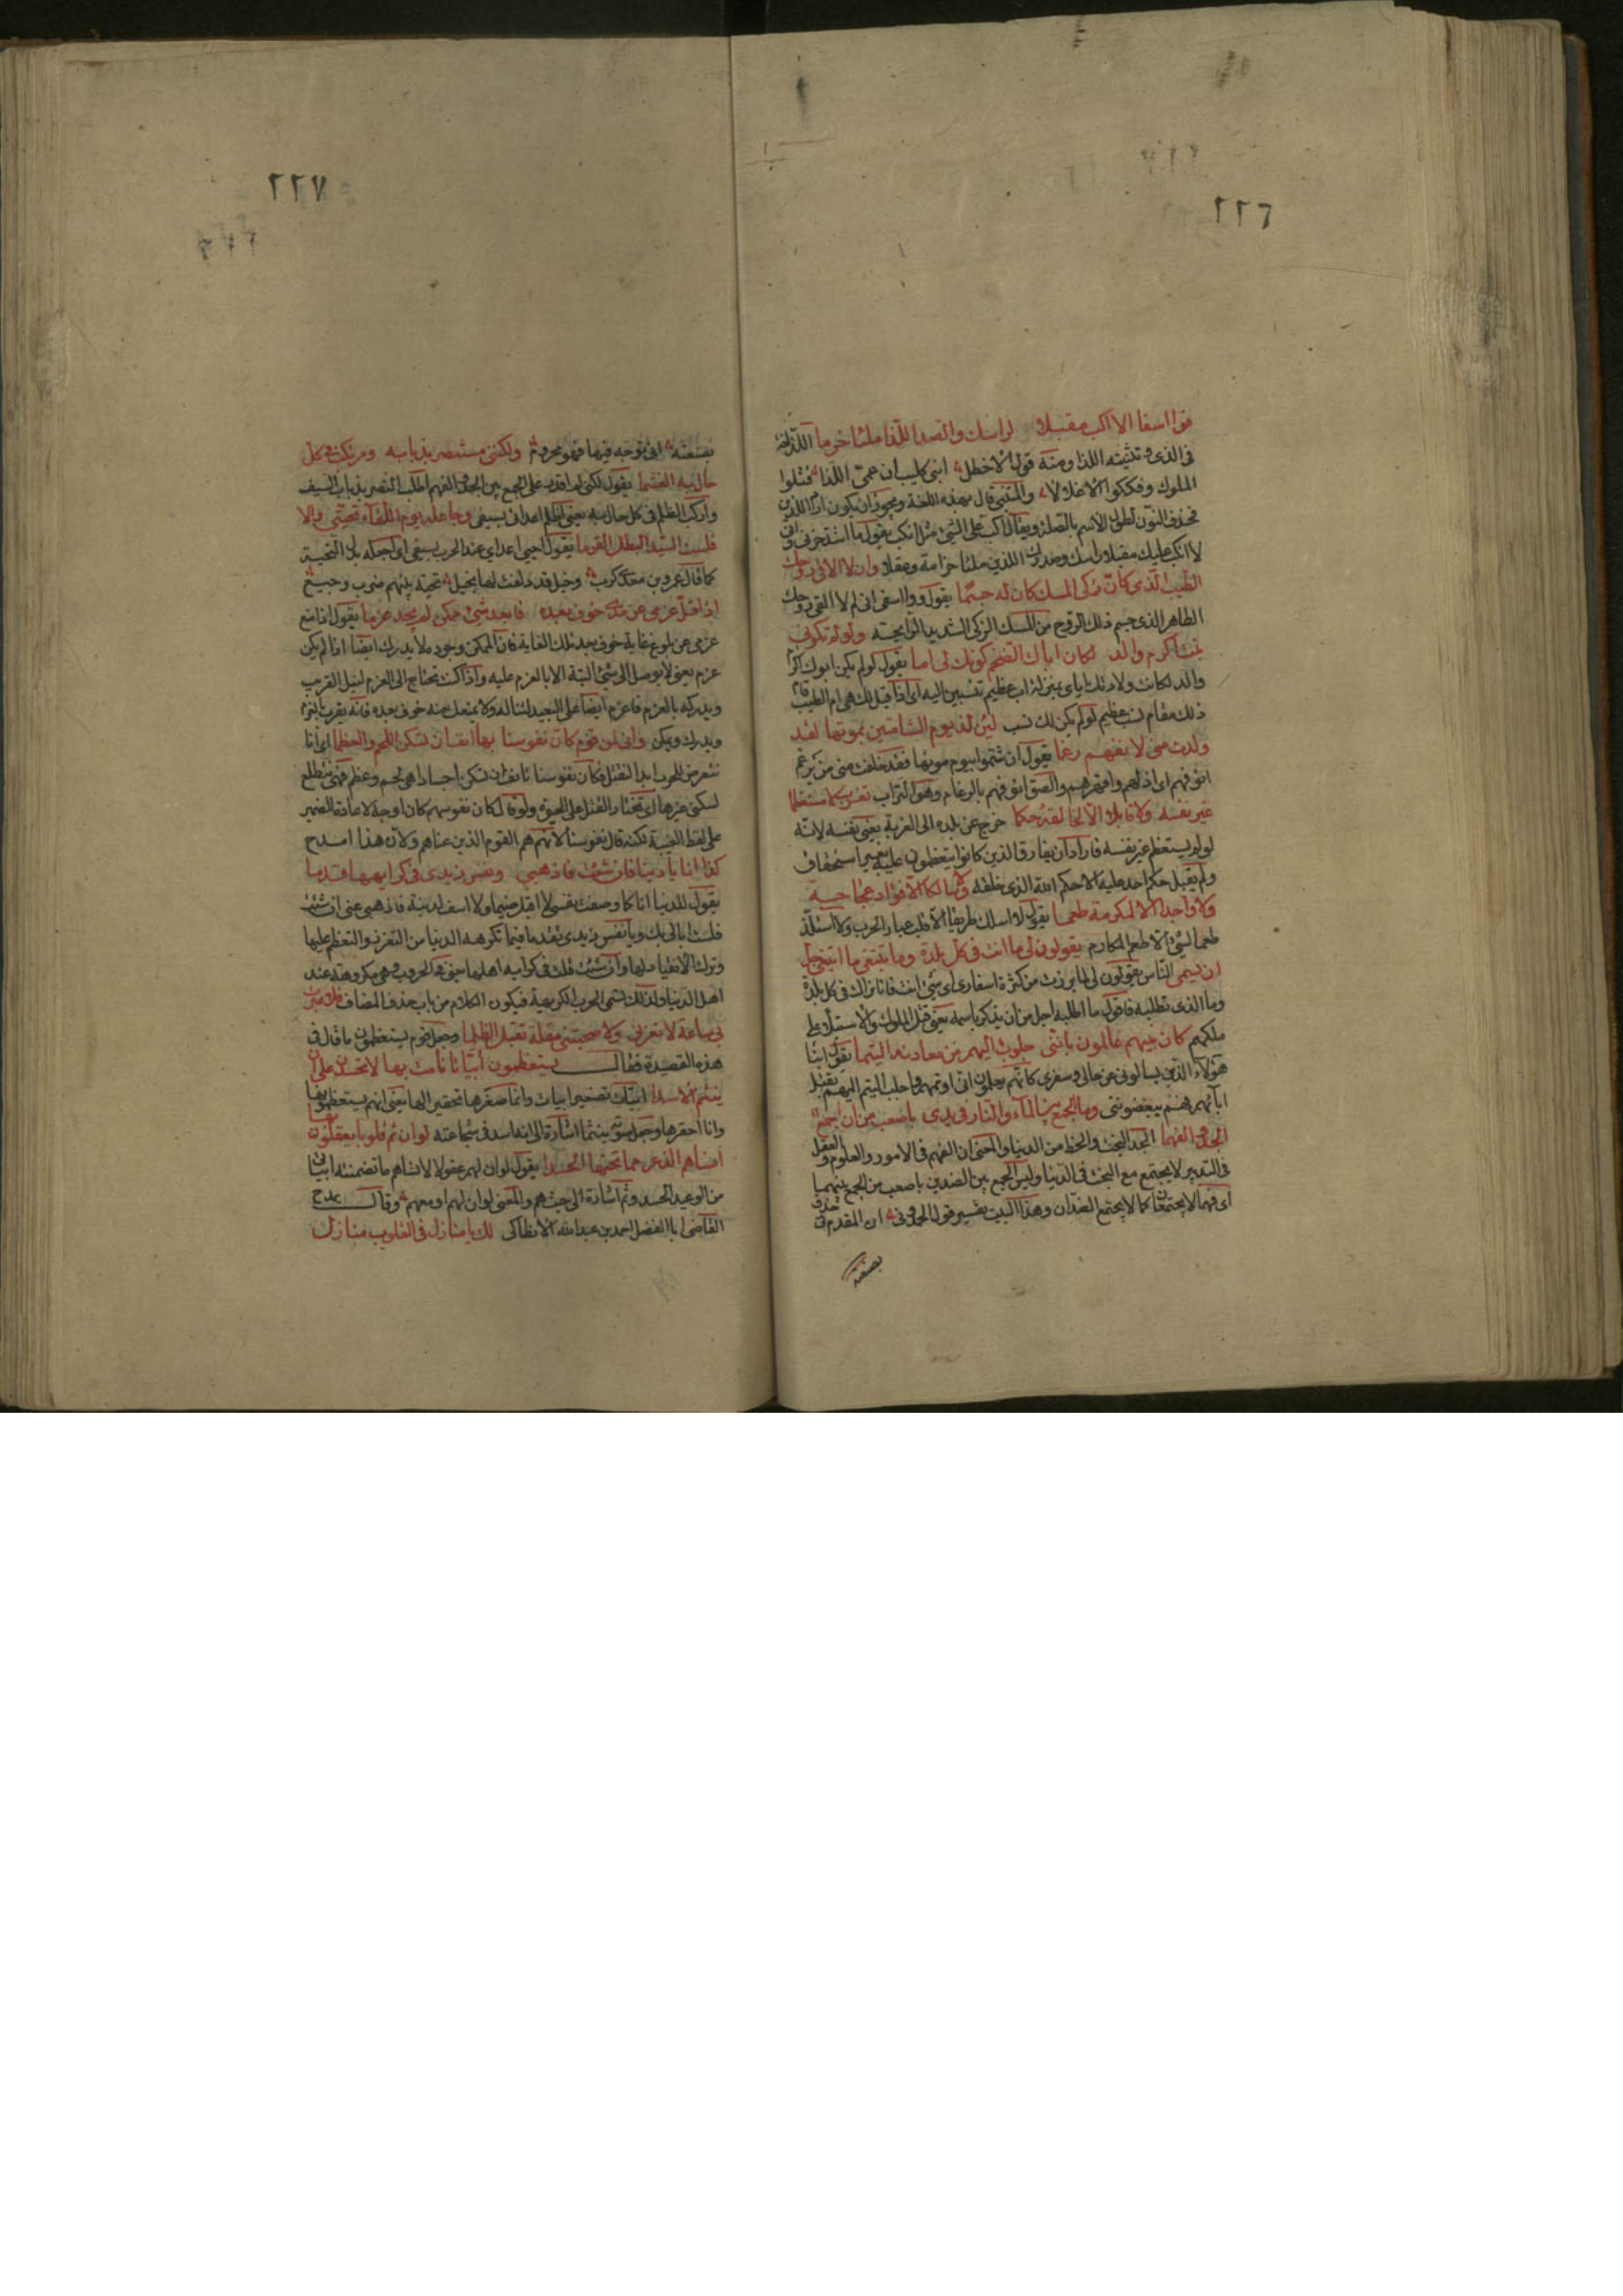 ٢٢٦
فوا اسفا الا اكب مقبلا لراسك والصدر اللذا ملئا حزما اللذا لغة
فى الذى وتثنيته اللذا ومنه قول الاخطل ابنى كليب ان عمى اللذا قتلوا
الملوك وفككوا الاغلالا والمتنبى قال بهذه اللغة ويجوز ان يكون اراد اللذين
فحذف النون لطول الاسم بالصلة ويقال اكب على الشئ مثل انكب يقول ما اشد حزنى
لا انكب عليك مقبلا راسك وصدرك اللذين ملئا حزامة وعقلا وان لا الاقى روحك
الطيب الذى كان ذكى المسك كان له جسما يقول ووا اسفى انى لم الاقى روحك
الطاهر الذى جسم ذلك الروح من المسك الزكى الشديد الرايحة ولو لم تكونى
بنت اكرم والد لكان اباك الضخم كونك لى اما يقول لو لم يكن ابوك اكرم
والد لكانت ولادتك اياى بمنزلة اب عظيم تنسبين اليه اى اذا قيل لك هى ام الطيب قام
ذلك مقام نسب عظيم لو لم يكن لك نسب لئن لذ يوم الشامتين بموتها لقد
ولدت منى لانفهم رغما يقول ان شمتوا بيوم موتها فقد خلفت منى من يرغم
انوفهم اى اذلهم واقهرهم والصق انوفهم بالرغام وهو التراب تغرب لا مستعظما
غير نفسه ولا قابلا الا لخالقه حكما خرج عن بلده الى الغربة يعنى نفسه لانه
لو لم يستعظم غير نفسه فاراد ان يفارق الذين كانوا يتعظمون عليه بغير استحقاق
ولم يقبل حكم احد عليه الا حكم الله الذى خلقه ولا سالكا الا فؤاد عجاجة
ولا واجدا الا لمكرمة طعما يقول لا اسلك طريقا الا قلب غبار الحرب ولا استلذ
طعما لشئ الا طعم المكارم يقولون لى ما انت فى كل بلدة وما تبتغى ما ابتغى جل
ان يسمى الناس يقولون لى لما يرون من كثرة اسفارى اى شئ انت فانا نراك فى كل بلدة
وما الذى تطلبه فاقول ما اطلبه اجل من ان يذكر باسمه يعنى قتل الملوك والاستيلاء على
ملكهم كان بنيهم عالمون باننى جلوب اليهم من معادنه اليتما يقول ابنا
هؤلاء الذين يسالونى عن حالى وسفرى كانهم يعلمون انى اوتمهم واجلب اليتم اليهم بقتل
ابائهم فهم يبغضوننى وما الجمع بين الماء والنار فى يدى باصعب من ان اجمع
الجد والفهما الجد البخت والحظ من الدنيا والمعنى ان الفهم فى الامور والعلوم والعقل
فى التدبير لا يجتمع مع البخت فى الدنيا وليس الجمع بين الضدين باصعب من الجمع بينهما
اى فهما لا يجتمعان كما لا يجتمع الضدان وهذا البيت تفسير قول الحمدونى ان المقدم فى حذق
بصنعة
٢٢٧
بصنعته انى توجه فيها فهو محروم ولكننى مستنصر بذبابه ومرتكب فى كل
حال به الغشما يقول لكنى لم اقدر على الجمع بين الجد والفهم اطلب النصر بذباب السيف
واركب الظلم فى كل حال به يعنى اظلم اعدائى بسيفى وجاعله يوم اللقاء تحيتى والا
فلست السيد البطل القرما يقول احيى اعداى عند الحرب بسيفى اى اجعله بدل التحية
كما قال عمرو بن معدى كرب وخيل قد دلفت لها بخيل تحية بينهم ضرب وجيع
اذا فل عزمى عن مدى خوف بعده فابعد شئ ممكن لم يجد عزما يقول اذا منع
عزمى عن بلوغ غاية خوف بعد تلك الغاية فان الممكن وجوده لا يدرك ايضا اذا لم يكن
عزم يعنى لا يوصل الى شئ البتة الا بالعزم عليه واذا كنت تحتاج الى العزم لنيل القريب
ويدركه بالعزم فاعزم ايضا على البعيد لتناله ولا يمنعك منه خوف بعده فانه يقرب بالعزم
ويدرك ويمكن وانى لمن قوم كان نفوسنا بها انف ان تسكن اللحم والعظما اى انا
نتعرض للحرب ابدا لنقتل فكان نفوسنا تانف ان تسكن اجسادا هى لحم وعظم فهى تتطلع
لسكنى غيرها اى تختار القتل على الحيوة ولو قال كان نفوسهم كان اوجه لاعادة الضمير
على لفظ الغيبة لكنه قال نفوسنا لانهم هم القوم الذين عناهم ولان هذا امدح
كذا انا يا دنيا فان شئت فاذهبى ويا نفس زيدى فى كرايهها قدما
يقول للدنيا انا كما وصفت نفسى لا اقبل ضيما ولا اسف لدنية فاذهبى عنى ان شئت
فلست ابالى بك ويا نفس زيدى تقدما فيما تكرهه الدنيا من التعزز والتعظم عليها
وترك الانقياد لها وان شئت قلت فى كرايه اهلها يعنى فى الحروب وهى مكروهة عند
اهل الدنيا ولذلك تسمى الحرب الكريهة فيكون الكلام من باب حذف المضاف فلا عبرت
بى ساعة لا تعزنى ولا صحبتنى مهجة تقبل الظلما وجعل قوم يستعظمون ما قال فى
هذه القصيدة فقال يستعظمون ابياتا نامت بها لا تحسدن على ان
ينئم الاسدا ابيات تصغير ابيات وانما صغرها تحقيرا لها يعنى انهم يستعظمونها
وانا احقرها وجعل صوته نئيما اشارة الى انه اسد فى شجاعته لو ان ثم قلوبا يعقلون بها
انساهم الذعر مما تحتها الحسدا يقول لو ان لهم عقولا لانساهم ما تضمنته ابياتى
من الوعيد الحسد وثم اشارة الى حيث هم والمعنى لو ان لهم او معهم وقال يمدح
القاضى ابا الفضل احمد بن عبد الله الانطاكى لك يا منازل فى القلوب منازل